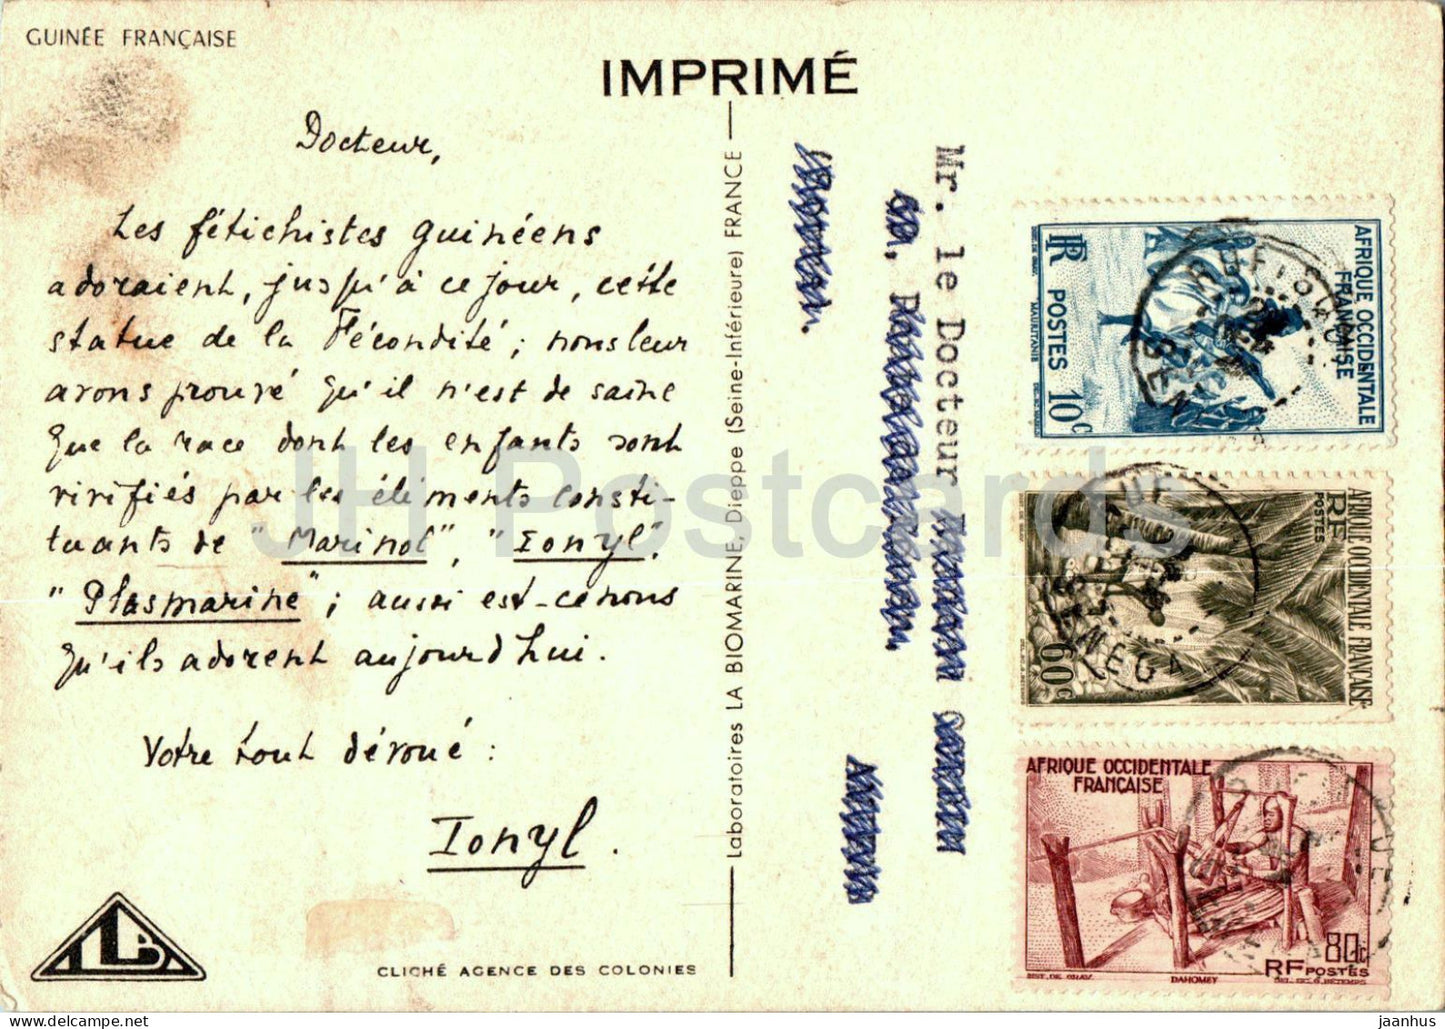 GUINÉE FRANÇAISE
IMPRIMÉ
Docteur,
Les fétichistes guinéens
adoraient, jusqu'à ce jour, cette
statue de la Fécondité ; nous leur
avons prouvé qu'il n'est de saine
que la race dont les enfants sont
vivifiés par les éléments consti-
tuants de "Marinol", "Ionyl",
"Plasmarine" ; aussi est-ce nous
qu'ils adorent aujourd'hui.
Votre tout dévoué :
Ionyl.
CLICHÉ AGENCE DES COLONIES
Laboratoires LA BIOMARINE, Dieppe (Seine-Inférieure) FRANCE
Mr. le Docteur
AFRIQUE OCCIDENTALE
FRANÇAISE
RF POSTES 10c
MAURITANIE
RUFISQUE
SEN
AFRIQUE OCCIDENTALE FRANÇAISE
RF
POSTES
60c
UF
NEGA
AFRIQUE OCCIDENTALE
FRANÇAISE
80c
RF POSTES
DAHOMEY
JH Postcards
www.delcampe.net
jaanhus